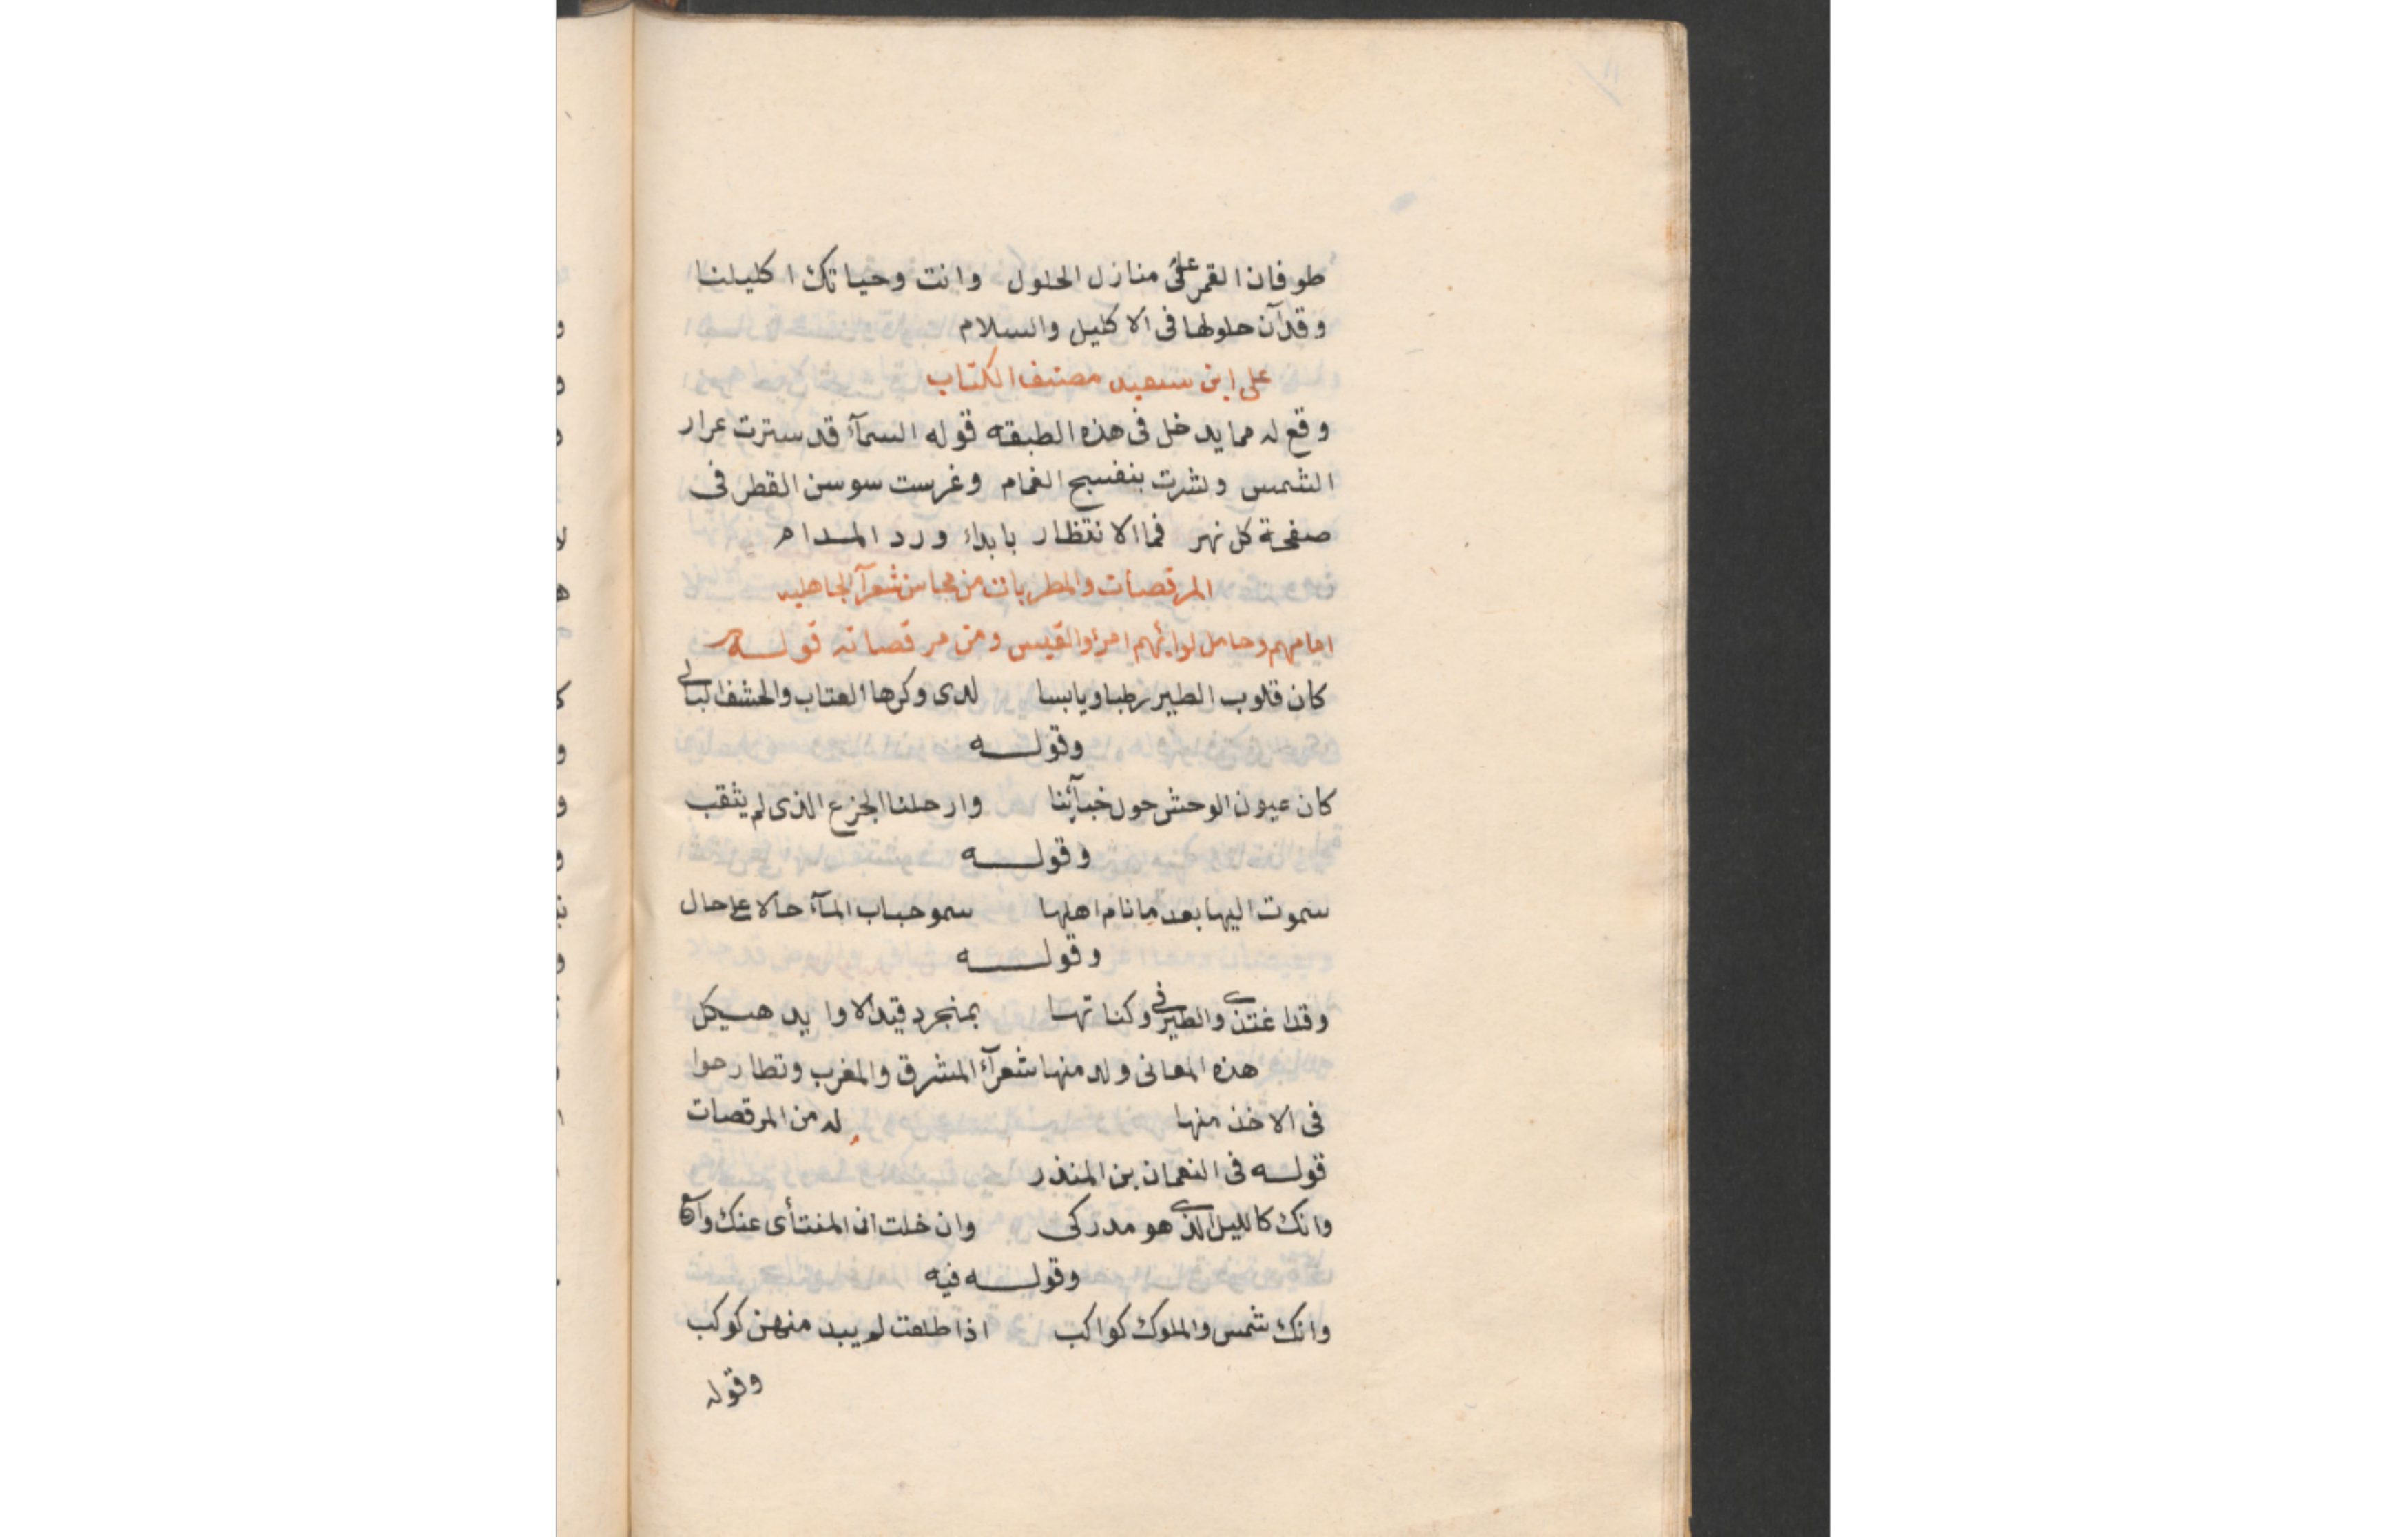 طوفان القمر على منازل الحلول وانت وحياتك اكليلنا
وقد آن حلولها فى الاكليل والسلام
على ابن سعيد مصنف الكتاب
وقع له مما يدخل فى هذه الطبقه قوله السمآء قد سترت عرار
الشمس ونشرت بنفسج الغمام وغرست سوسن القطر فى
صفحة كل نهر فما الانتظار بابداء ورد المدام
المرقصات والمطربات من محاسن شعرآء الجاهليه
امامهم وحامل لوائهم امرؤ القيس ومن مرقصاته قوله
كان قلوب الطير رطبا ويابسا لدى وكرها العتاب والحشف البالى
وقوله
كان عيون الوحش حول خبآئنا وارحلنا الجزع الذى لم يثقب
وقوله
سموت اليها بعد ما نام اهلها سمو حباب المآء حالا على حال
وقوله
وقد اغتدى والطير فى وكناتها بمنجرد قيد الاوابد هيكل
هذه المعانى ولد منها شعرآء المشرق والمغرب وتطارحوا
فى الاخذ منها له من المرقصات
قوله فى النعمان بن المنذر
وانك كالليل الذى هو مدركى وان خلت ان المنتأى عنك واسع
وقوله فيه
وانك شمس والملوك كواكب اذا طلعت لم يبد منهن كوكب
وقوله